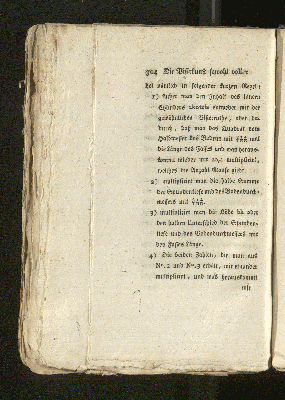 304 Die Visirkunst sowohl voller
hat nämlich in folgender kurzen Regel:
1) suchet man den Inhalt des leeren
Cylinders entweder mit der
gewöhnlichen Visirruthe, oder da-
durch, daß man das Quadrat vom
Halbmesser des Bodens mit
die Länge des Fasses und was heraus-
kommt wieder mit multiplicirt,
welches die Anzahl Maase giebt.
2) multiplicirt man die halbe Summe
der Spundentiefe und des Bodendurch-
messers mit
3) multiplicirt man die
den halben Unterschied der Spunden-
tiefe und des Bodendurchmessers mit
des Fasses Länge.
4) Die beiden Zahlen, die man aus
Nr. 2 und Nr. 3 erhält, mit einander
multiplicirt, und was herauskommt